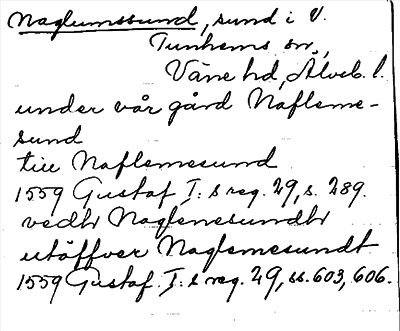 Naglumssund, sund i V.
Tunhems sn,
Väne hd, Älvsb. l.
under vår gård Nafleme-
sund
till Naflemesund
1559 Gustaf I:s reg. 29, s. 289.
vedhr Naglemesundhr
utöffver Naglemesundt
1559 Gustaf. I:s reg. 29, ss. 603, 606.